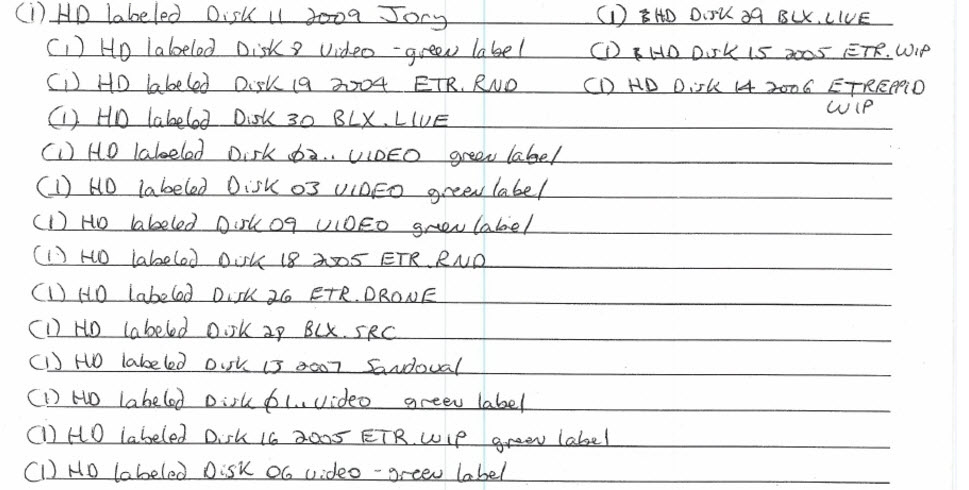 (1) HD labeled Disk 11 2009 Jory
(1) HD Disk 29 BLX.LIVE
(1) HD labeled Disk 8 Video - green label
(1) HD Disk 15 2005 ETR.WIP
(1) HD labeled Disk 19 2004 ETR.RND
(1) HD Disk 14 2006 ETREPPID
WIP
(1) HD labeled Disk 30 BLX.LIVE
(1) HD labeled Disk 02.. VIDEO green label
(1) HD labeled Disk 03 VIDEO green label
(1) HD labeled Disk 09 VIDEO green label
(1) HD labeled Disk 18 2005 ETR.RND
(1) HD labeled Disk 26 ETR.DRONE
(1) HD labeled Disk 28 BLX.SRC
(1) HD labeled Disk 13 2007 Sandoval
(1) HD labeled Disk 01.. Video green label
(1) HD labeled Disk 16 2005 ETR.WIP green label
(1) HD labeled Disk 06 video - green label